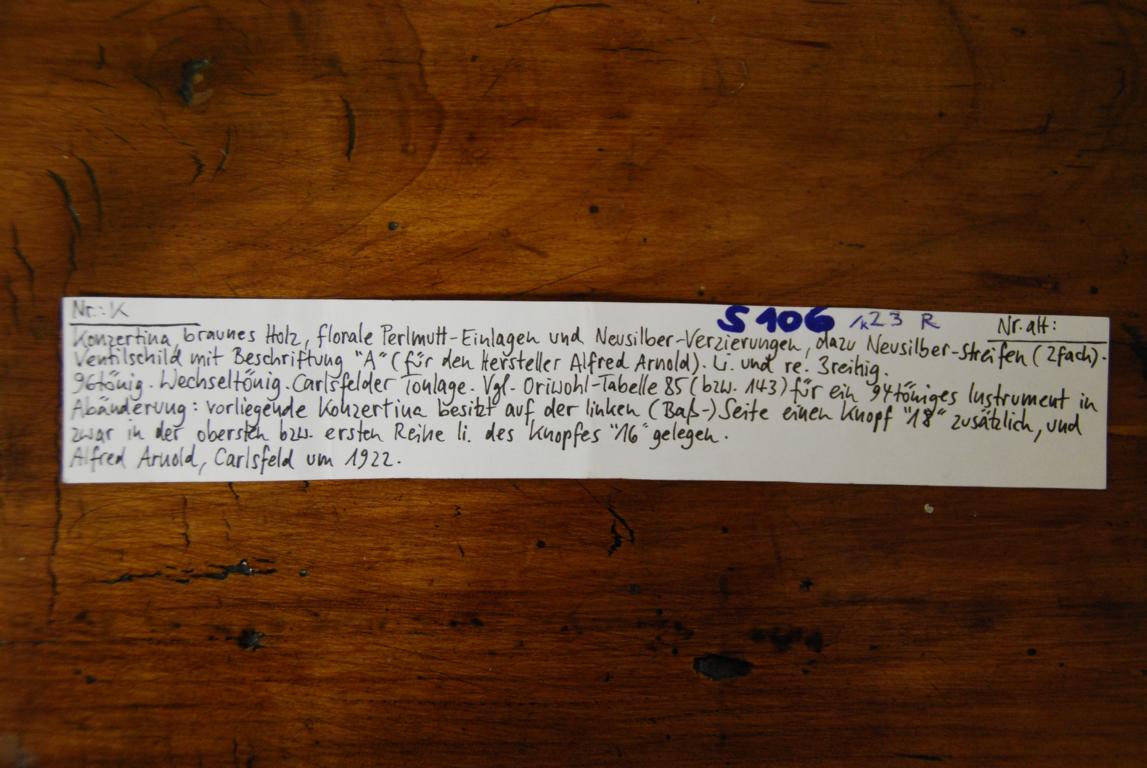 Nr.: K S 106 /k23 R Nr. alt:
Konzertina, braunes Holz, florale Perlmutt-Einlagen und Neusilber-Verzierungen, dazu Neusilber-Streifen (2fach).
Ventilschild mit Beschriftung "A" (für den Hersteller Alfred Arnold). Li. und re. 3reihig.
96tönig. Wechseltönig. Carlsfelder Tonlage. Vgl. Oriwohl-Tabelle 85 (bzw. 143) für ein 94töniges Instrument in
Abänderung: vorliegende Konzertina besitzt auf der linken (Baß-) Seite einen Knopf "18" zusätzlich, und
zwar in der obersten bzw. ersten Reihe li. des Knopfes "16" gelegen.
Alfred Arnold, Carlsfeld um 1922.